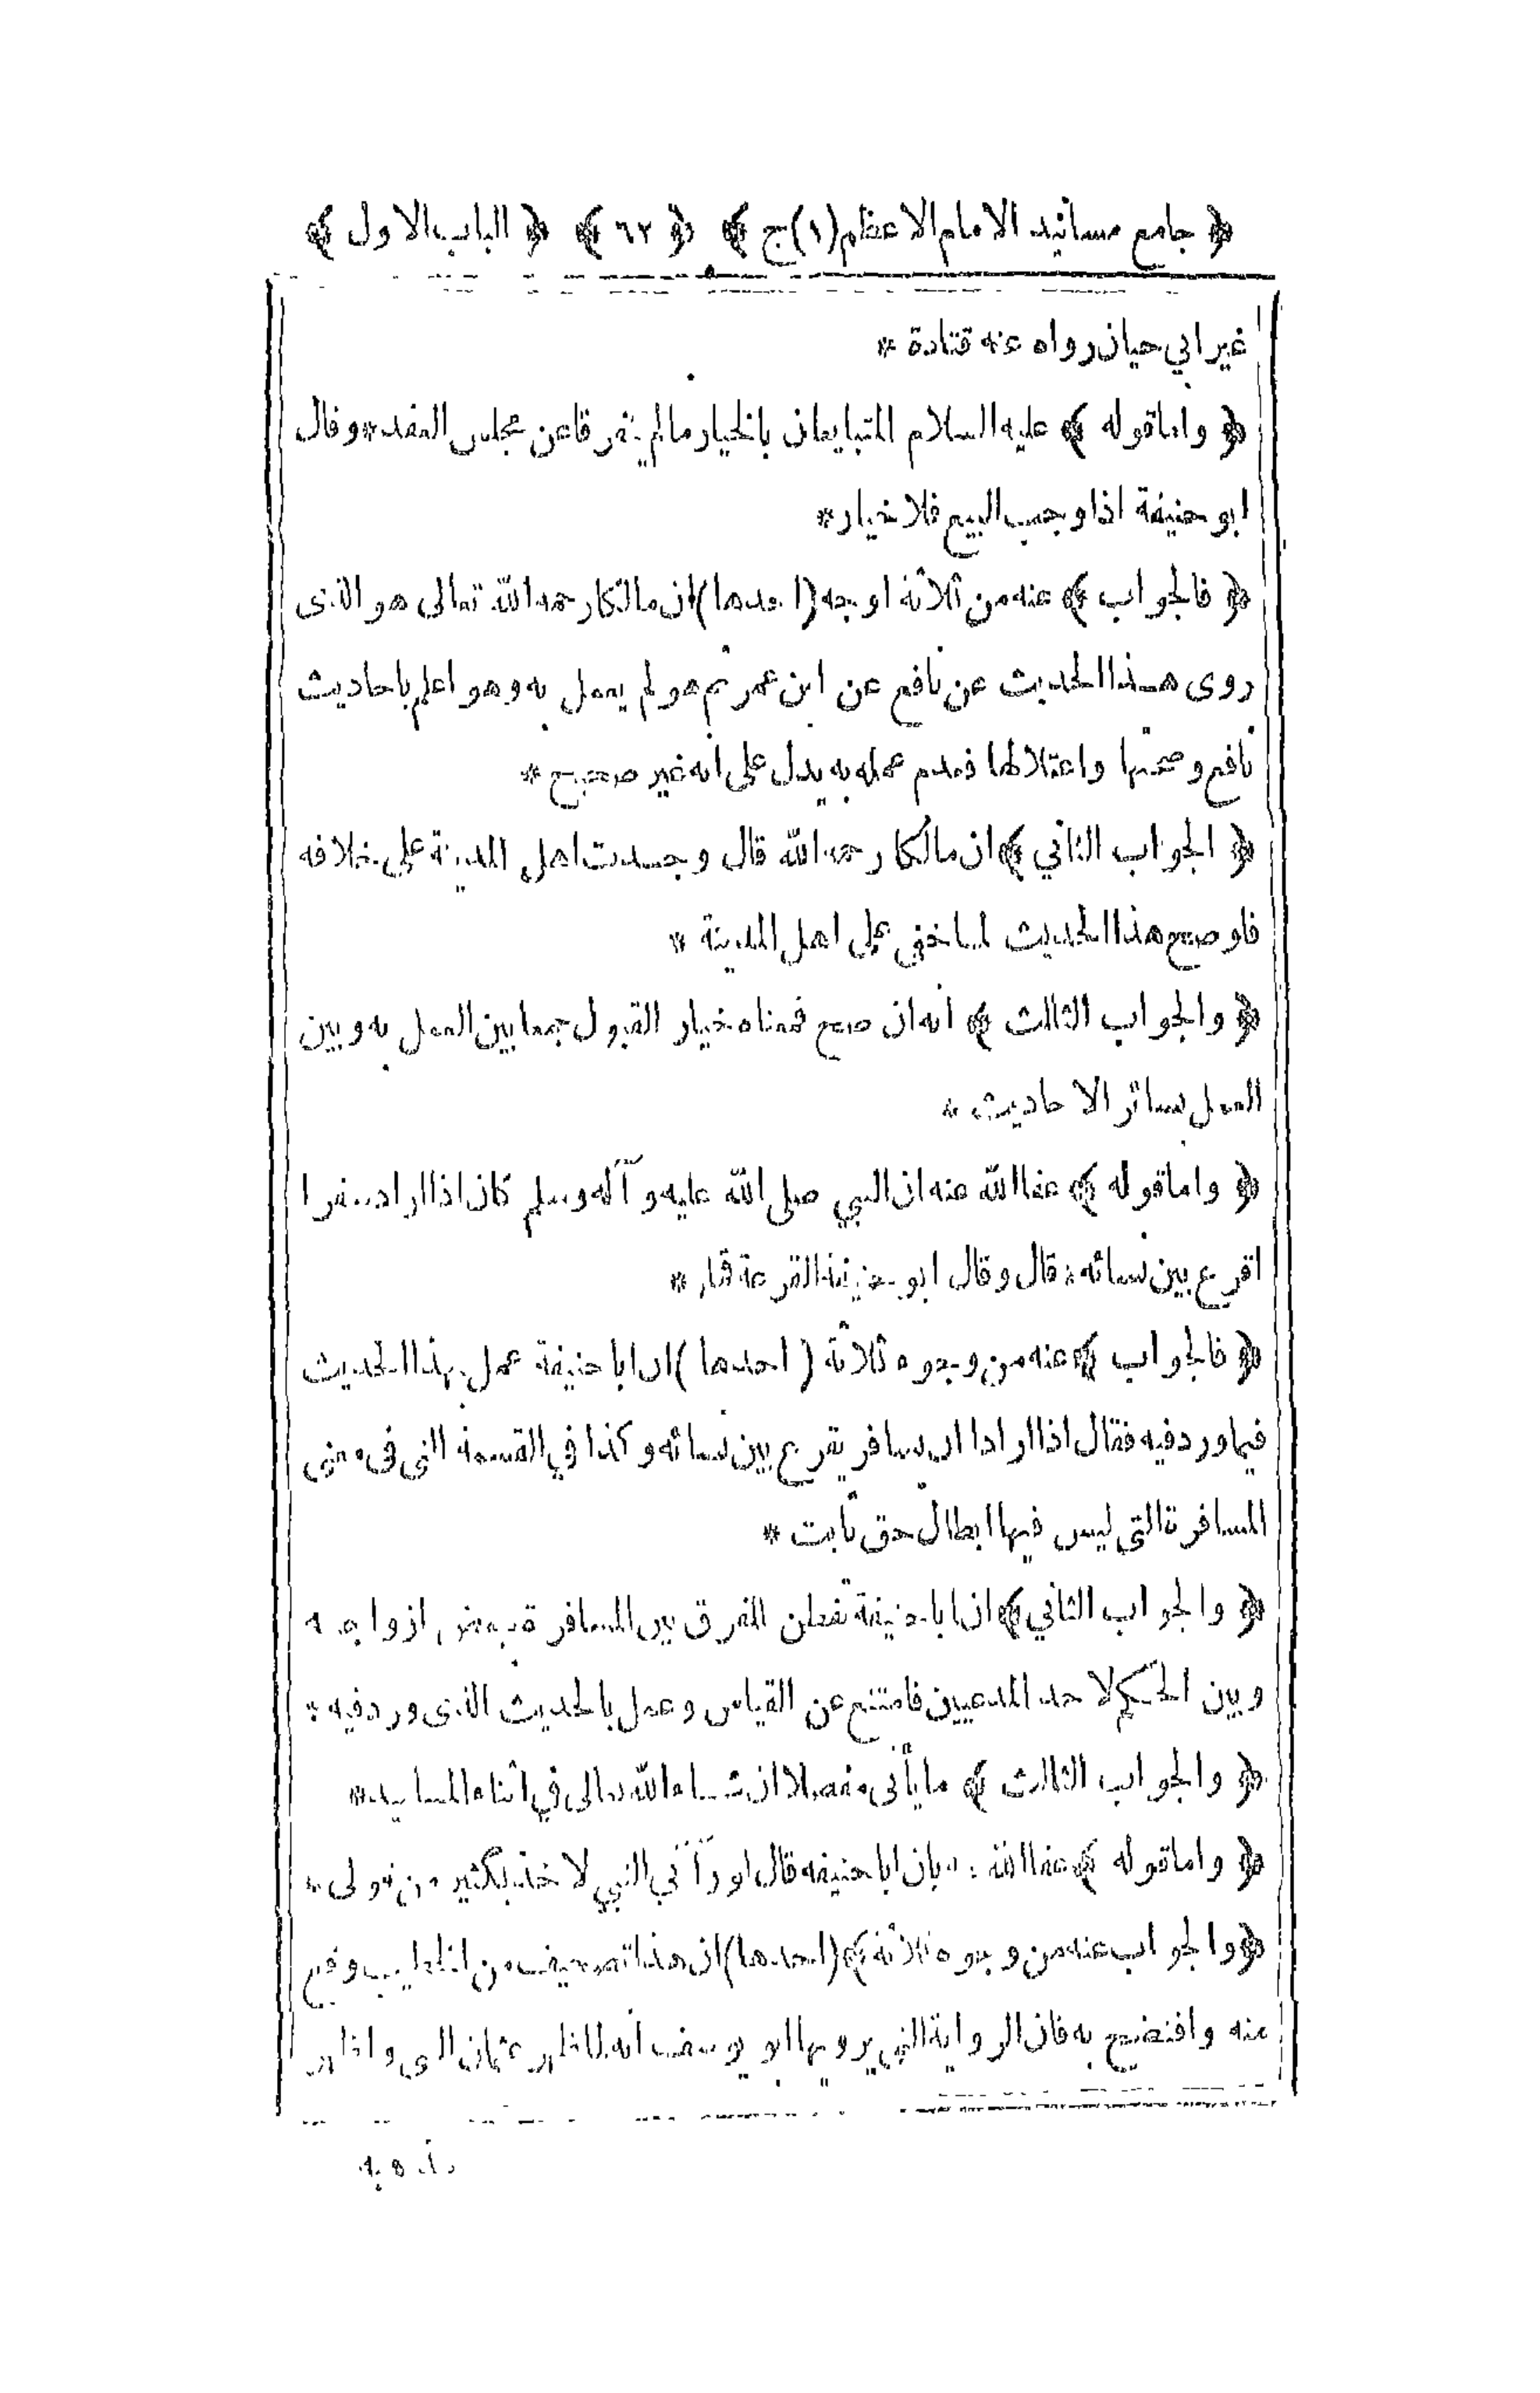 ﴿ جامع مسانيد الامام الاعظم (١) ج ﴾ ﴿ ٦٢ ﴾ ﴿ الباب الاول ﴾
غير ابي حيان رواه عنه قتادة *
﴿ واما قوله ﴾ عليه السلام المتبايعان بالخيار ما لم يتفرقا عن مجلس العقد * وقال
ابو حنيفة اذا وجب البيع فلا خيار *
﴿ فالجواب ﴾ عنه من ثلاثة اوجه (احدها) ان مالكا رحمه الله تعالى هو الذى
روى هذا الحديث عن نافع عن ابن عمر ثم هو لم يعمل به وهو اعلم باحاديث
نافع وصحتها واعتلالها فعدم عمله به يدل على انه غير صحيح *
﴿ الجواب الثاني ﴾ ان مالكا رحمه الله قال وجدت اهل المدينة على خلافه
فلو صح هذا الحديث لما خفي على اهل المدينة *
﴿ والجواب الثالث ﴾ انه ان صح فمعناه خيار القبول جمعا بين العمل به وبين
العمل بسائر الاحاديث *
﴿ واما قوله ﴾ عفا الله عنه ان النبي صلى الله عليه وآله وسلم كان اذا اراد سفرا
اقرع بين نسائه * قال وقال ابو حنيفة القرعة قمار *
﴿ فالجواب ﴾ عنه من وجوه ثلاثة (احدها) ان ابا حنيفة عمل بهذا الحديث
فيما ورد فيه فقال اذا اراد ان يسافر يقرع بين نسائه وكذا في القسمة التى فى معنى
المسافرة التي ليس فيها ابطال حق ثابت *
﴿ والجواب الثاني ﴾ ان ابا حنيفة تفطن الفرق بين المسافرة ببعض ازواجه
وبين الحكم لاحد المدعيين فامتنع عن القياس وعمل بالحديث الذى ورد فيه *
﴿ والجواب الثالث ﴾ ما يأتى مفصلا ان شاء الله تعالى في اثناء المسانيد *
﴿ واما قوله ﴾ عفا الله عنه بان ابا حنيفة قال لو رآني النبي لاخذ بكثير من قولى *
﴿ والجواب عنه من وجوه ثلاثة ﴾ (احدها) ان هذا تصحيف من الخطيب وقع
منه وافتضح به فان الرواية التي يرويها ابو يوسف انه لما ظهر عثمان البتى واظهر